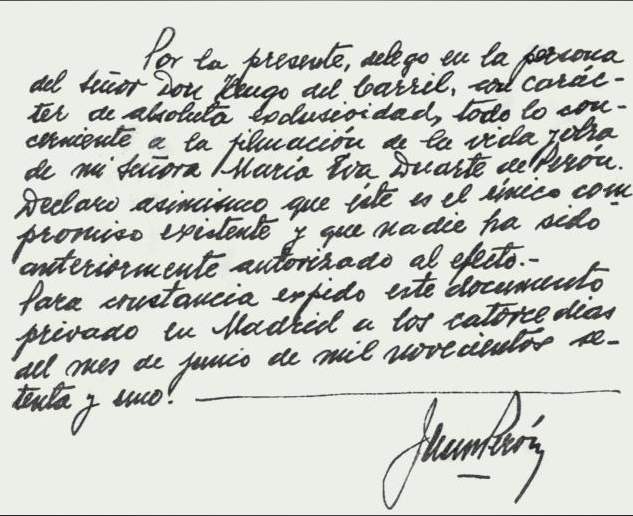 Por la presente, delego en la persona
del señor Don Hugo del Carril, con carác-
ter de absoluta exclusividad, todo lo con-
cerniente a la filmación de la vida y obra
de mi señora María Eva Duarte de Perón.
Declaro asimismo que éste es el único com
promiso existente y que nadie ha sido
anteriormente autorizado al efecto.-
Para constancia expido este documento
privado en Madrid a los catorce dias
del mes de junio de mil novecientos se-
tenta y uno.
Juan Perón